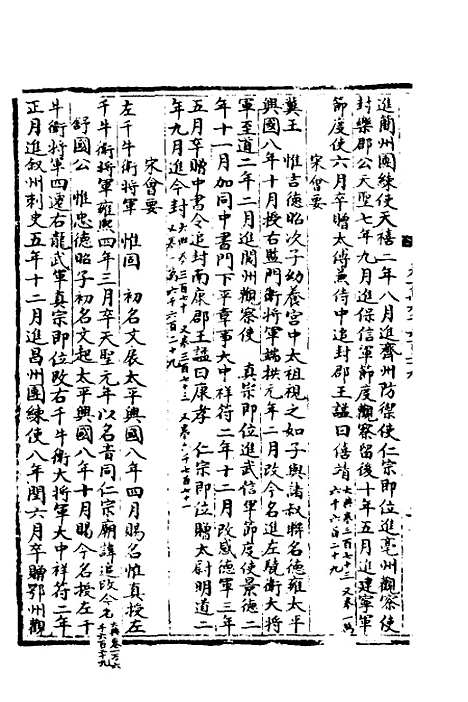 進蘭州團練使天禧二年八月進齊州防禦使仁宗即位進亳州觀察使
封樂郡公天聖七年九月進保信軍節度觀察留後十年五月進建寧軍
節度使六月卒贈太傅兼侍中追封郡王諡曰僖靖大典卷三百七十三又卷一萬六千六百二十九
宋會要
冀王 惟吉德昭次子幼養宮中太祖視之如子與諸叔聯名德雍太平
興國八年十月授右監門衛將軍端拱元年二月改今名進左驍衛大將
軍至道二年二月進閬州觀察使 真宗即位進武信軍節度使景德二
年十一月加同中書門下平章事大中祥符二年十二月改感德軍三年
五月卒贈中書令追封南康郡王諡曰康孝 仁宗即位贈太尉明道二
年九月進今封
宋會要
左千牛衛將軍 惟固 初名文展太平興國八年四月賜名惟真授左
千牛衛將軍雍熙四年三月卒天聖元年以名音同仁宗廟諱追改今名大典卷一萬六千六百二十九
舒國公 惟忠德昭子初名文起太平興國八年十月賜今名授左千
牛衛將軍四遷右龍武軍真宗即位改右千牛衛大將軍大中祥符二年
正月進敘州刺史五年十二月進昌州團練使八年閏六月卒贈鄂州觀